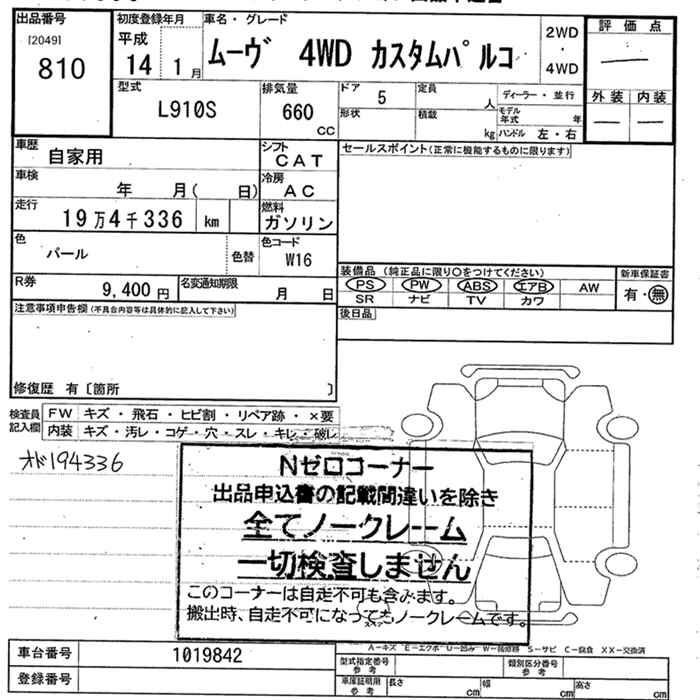 出品番号
[2049]
810
初度登録年月
平成
14 1月
車名・グレード
ムーヴ 4WD カスタムパルコ
2WD
・
4WD
評価点
—
外装 内装
— —
型式
L910S
排気量
660
CC
ドア 5
定員 人
ディーラー・並行
形状
積載 kg
モデル年式 年
ハンドル 左・右
車歴
自家用
シフト
CAT
車検
年 月( 日)
冷房
AC
走行
19万4千336 km
燃料
ガソリン
色
パール
色替
色コード
W16
R券
9,400円
名変通知期限
月 日
セールスポイント(正常に機能するものに限ります)
装備品(純正品に限り○をつけてください)
PS PW ABS エアB AW
SR ナビ TV カワ
新車保証書
有・無
後日品
注意事項申告欄(不具合内容等は具体的に記入して下さい)
修復歴 有〔箇所 〕
検査員記入欄
FW キズ・飛石・ヒビ割・リペア跡・×要
内装 キズ・汚レ・コゲ・穴・スレ・キレ・破レ
オド194336
Nゼロコーナー
出品申込書の記載間違いを除き
全てノークレーム
一切検査しません
このコーナーは自走不可も含みます。
搬出時、自走不可になってもノークレームです。
スペア
A-キズ E-エクボ U-凹み W-補修跡 S-サビ C-腐食 XX-交換済
車台番号 1019842
登録番号
型式指定番号 参考
類別区分番号 参考
車庫証明用 参考
長さ cm 幅 cm 高さ cm